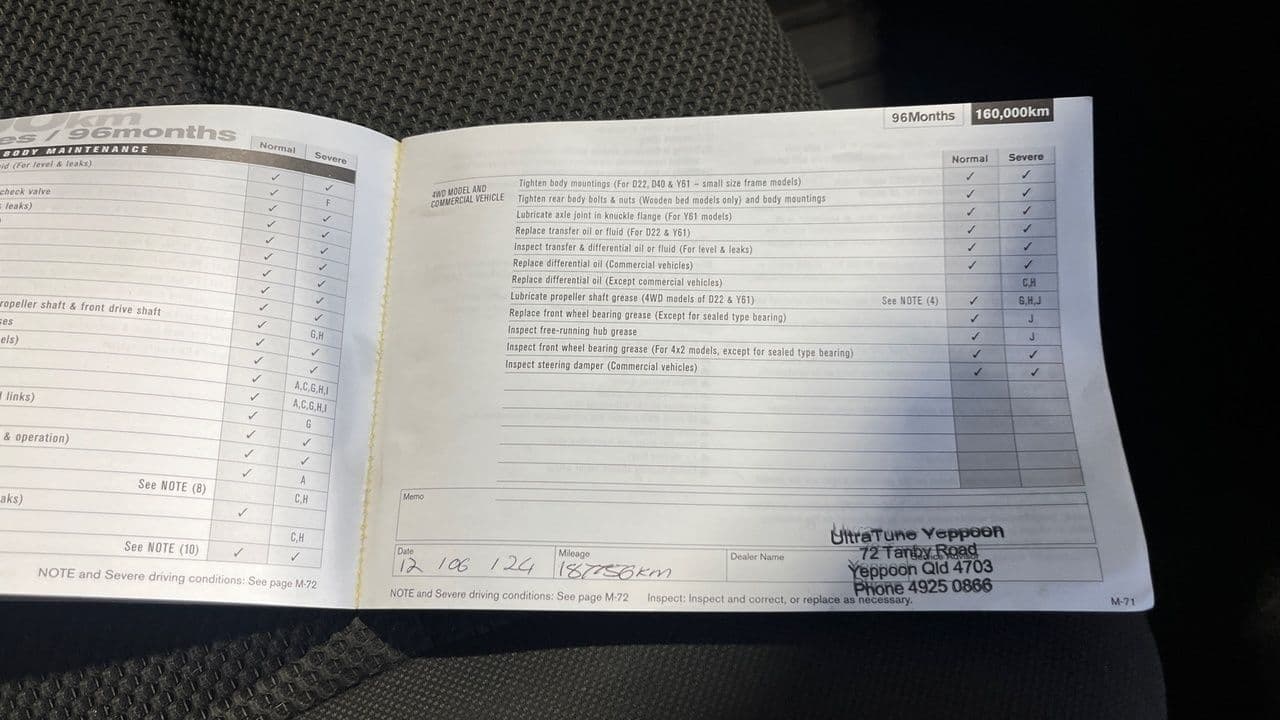 km
es / 96months
BODY MAINTENANCE
Normal
Severe
id (For level & leaks)
✓ ✓
check valve
✓ F
leaks)
✓ ✓
✓ ✓
✓ ✓
✓ ✓
✓ ✓
✓ ✓
ropeller shaft & front drive shaft
✓ G,H
ses
✓ ✓
els)
✓ ✓
✓ A,C,G,H,I
links)
✓ A,C,G,H,I
✓ G
& operation)
✓ ✓
✓ ✓
✓ A
See NOTE (8)
C,H
aks)
✓
C,H
See NOTE (10) ✓ ✓
NOTE and Severe driving conditions: See page M-72
96Months 160,000km
Normal Severe
4WD MODEL AND
COMMERCIAL VEHICLE
Tighten body mountings (For D22, D40 & Y61 – small size frame models) ✓ ✓
Tighten rear body bolts & nuts (Wooden bed models only) and body mountings ✓ ✓
Lubricate axle joint in knuckle flange (For Y61 models) ✓ ✓
Replace transfer oil or fluid (For D22 & Y61) ✓ ✓
Inspect transfer & differential oil or fluid (For level & leaks) ✓ ✓
Replace differential oil (Commercial vehicles) ✓ ✓
Replace differential oil (Except commercial vehicles) C,H
Lubricate propeller shaft grease (4WD models of D22 & Y61) See NOTE (4) ✓ G,H,J
Replace front wheel bearing grease (Except for sealed type bearing) ✓ J
Inspect free-running hub grease ✓ J
Inspect front wheel bearing grease (For 4x2 models, except for sealed type bearing) ✓ ✓
Inspect steering damper (Commercial vehicles) ✓ ✓
Memo
Date
12 / 06 / 24
Mileage
km
Dealer Name
UltraTune Yeppoon
72 Tanby Road
Yeppoon Qld 4703
Phone 4925 0866
NOTE and Severe driving conditions: See page M-72 Inspect: Inspect and correct, or replace as necessary.
M-71